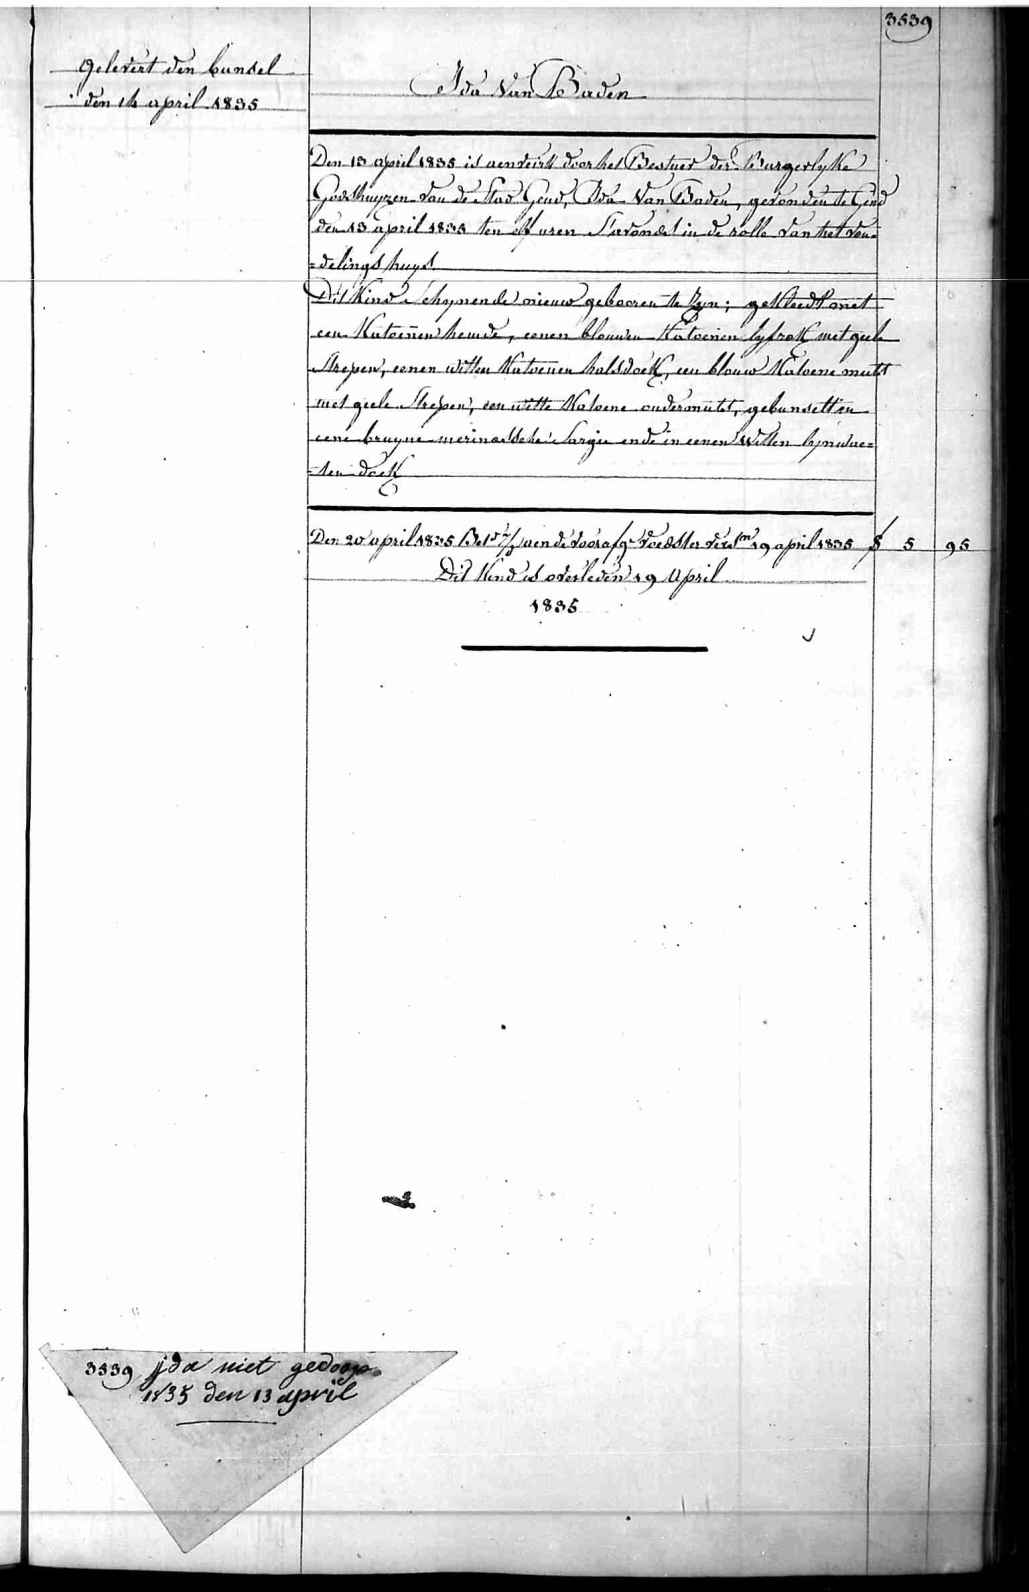 3539
gelevert den bunsel
den 14 april 1835
Ida Van Baden
Den 13 april 1835 is aenveirt door het Bestuer der Burgerlyke
Godshuyzen van de stad Gend, Ida Van Baden, gevonden te Gend
den 13 april 1835 ten elf uren S'avonds in de rolle van het von=
=delings huys.
Dit Kind schynende nieuw gebooren te zyn; gekleedt met
een Katoenen hemde, eenen blouwen Katoenen lyfrok met geele
strepen, eenen witten Katoenen halsdoek, een blouw Katoene muts
met geele strepen, een witte Katoene ondermuts, gebunselt in
eene bruyne merinossche Sargie ende in eenen witten lynwae=
=ten doek
Den 20 april 1835 aen de voedster 19 april 1835 5 95
Dit Kind is overleden 19 April
1835
3539 jda niet gedoop
1835 den 13 april